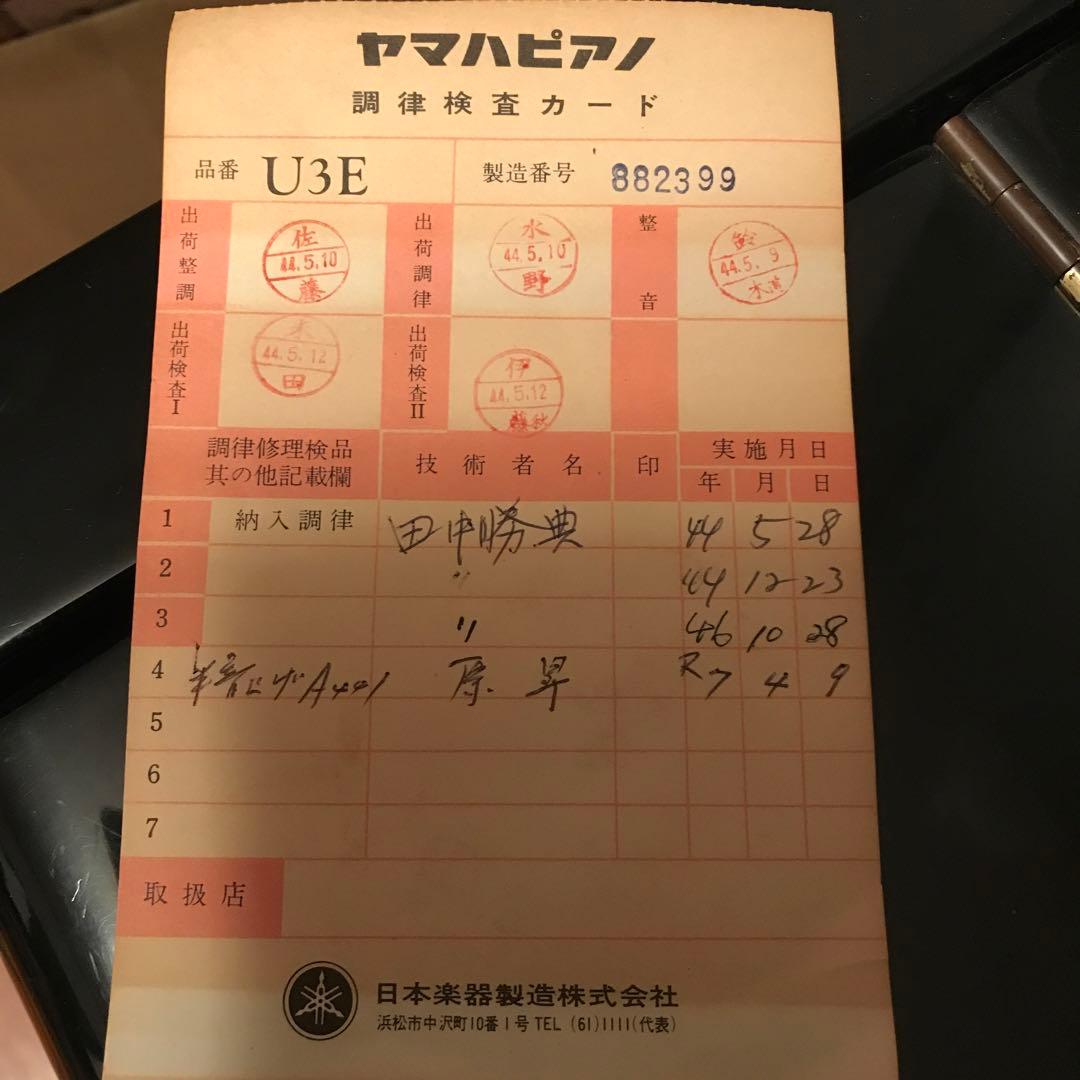 ヤマハピアノ
調律検査カード
品番 U3E 製造番号 882399
出荷整調 佐藤 44.5.10 出荷調律 水野 44.5.10 整音 鈴木 44.5.9
出荷検査I 田 44.5.12 出荷検査II 伊藤秋 44.5.12
調律修理検品其の他記載欄 技術者名 印 実施月日
年 月 日
1 納入調律 田中勝典 44 5 28
2 〃 44 12 23
3 〃 46 10 28
4 半音上げA441 原 昇 R7 4 9
5
6
7
取扱店
日本楽器製造株式会社
浜松市中沢町10番1号 TEL (61)1111(代表)